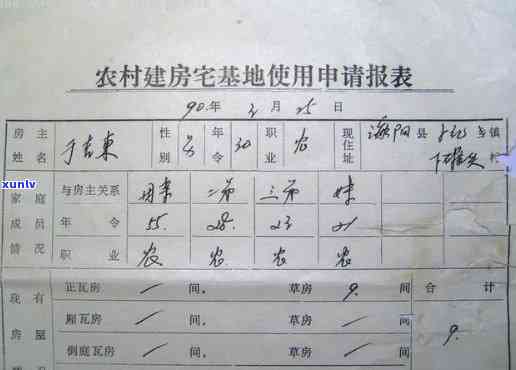 农村建房宅基地使用申请报表
90年 3月 25日
房主姓名 于吉東 性别 男 年令 30 职业 农 现住址 濉阳县 乡镇 村
家庭成员情况 与房主关系 二弟 三弟 妹
年令 55 28 23 21
职业 农 农 农 农
现有房屋 正瓦房 一 间, 草房 9 间 合计
厢瓦房 一 间, 草房 一 间 9
倒庭瓦房 一 间, 草房 一 间
xunlv